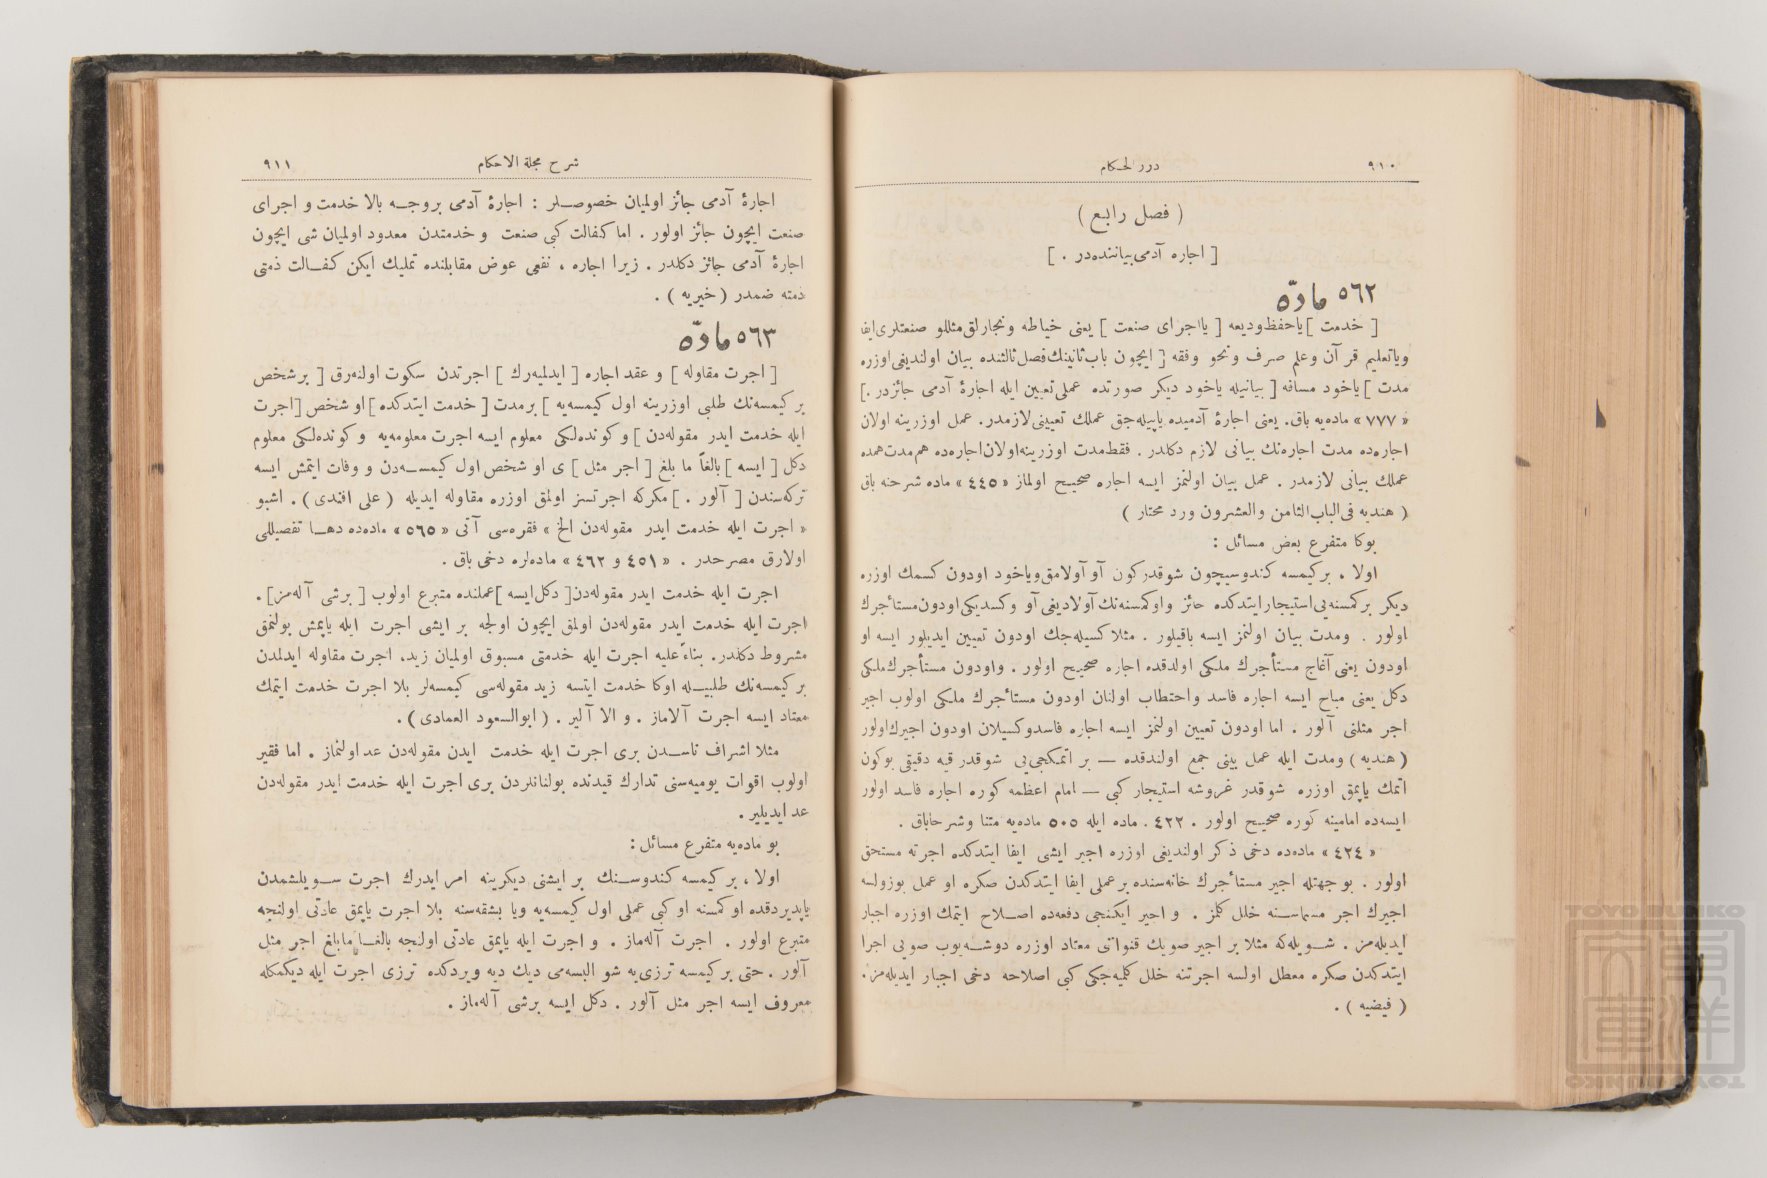 ٩١٠
درر الحكام
( فصل رابع )
[ اجاره آدمى بياننده‌در . ]
٥٦٢ مادّه
[ خدمت ] ياحفظ وديعه [ يااجراى صنعت ] يعنى خياطه ونجارلق مثللو صنعتلرى ايفا
وياتعليم قرآن وعلم صرف ونحو وفقه [ ايچون باب ثانينك فصل ثالثنده بيان اولنديغى اوزره
مدت ] ياخود مسافه [ بيانيله ياخود ديكر صورتده عملى تعيين ايله اجارۀ آدمى جائزدر .]
« ٧٧٧ » ماده‌يه باق. يعنى اجارۀ آدميده ياپيله‌جق عملك تعيينى لازمدر. عمل اوزرينه اولان
اجاره‌ده مدت اجاره‌نك بيانى لازم دكلدر . فقط مدت اوزرينه اولان اجاره‌ده هم مدت همده
عملك بيانى لازمدر . عمل بيان اولنمز ايسه اجاره صحيح اولماز « ٤٤٥ » ماده شرحنه باق
( هنديه فى الباب الثامن والعشرون ورد محتار )
بوكا متفرع بعض مسائل :
اولا ، بر كيمسه كندوسيچون شوقدر كون آو آولامق وياخود اودون كسمك اوزره
ديكر بر كمسنه‌يى استيجار ايتدكده جائز واوكمسنه‌نك آولاديغى آو وكسديكى اودون مستأجرك
اولور . ومدت بيان اولنمز ايسه باقيلور . مثلا كسيله‌جك اودون تعيين ايديلور ايسه او
اودون يعنى آغاج مستأجرك ملكى اولدقده اجاره صحيح اولور . واودون مستأجرك ملكى
دكل يعنى مباح ايسه اجاره فاسد واحتطاب اولنان اودون مستأجرك ملكى اولوب اجير
اجر مثلنى آلور . اما اودون تعيين اولنمز ايسه اجاره فاسدوكسيلان اودون اجيرك اولور
( هنديه ) ومدت ايله عمل بينى جمع اولندقده — بر اتمكجى‌يى شوقدر قيه دقيقى بوكون
اتمك ياپمق اوزره شوقدر غروشه استيجار كبى — امام اعظمه كوره اجاره فاسد اولور
ايسه‌ده امامينه كوره صحيح اولور . ٤٢٢ . ماده ايله ٥٠٥ ماده‌يه متنا وشرحاباق .
« ٤٢٤ » ماده‌ده دخى ذكر اولنديغى اوزره اجير ايشى ايفا ايتدكده اجرته مستحق
اولور . بوجهتله اجير مستأجرك خانه‌سنده بر عملى ايفا ايتدكدن صكره او عمل بوزولسه
اجيرك اجر مسماسنه خلل كلمز . و اجير ايكنجى دفعه‌ده اصلاح ايتمك اوزره اجبار
ايديله‌مز . شويله‌كه مثلا بر اجير صويك قنواتنى معتاد اوزره دوشه‌يوب صويى اجرا
ايتدكدن صكره معطل اولسه اجرتنه خلل كليه‌جكى كبى اصلاحه دخى اجبار ايديله‌مز .
( فيضيه ) .
٩١١
شرح مجلة الاحكام
اجارۀ آدمى جائز اولميان خصوصلر : اجارۀ آدمى بروجه بالا خدمت و اجراى
صنعت ايچون جائز اولور . اما كفالت كبى صنعت و خدمتدن معدود اولميان شى ايچون
اجارۀ آدمى جائز دكلدر . زيرا اجاره ، نفعى عوض مقابلنده تمليك ايكن كفالت ذمتى
ذمته ضمدر ( خيريه ) .
٥٦٣ مادّه
[ اجرت مقاوله ] و عقد اجاره [ ايدلميه‌رك ] اجرتدن سكوت اولنه‌رق [ بر شخص
بر كيمسه‌نك طلبى اوزرينه اول كيمسه‌يه ] برمدت [ خدمت ايتدكده ] او شخص [ اجرت
ايله خدمت ايدر مقوله‌دن ] و كونده‌لكى معلوم ايسه اجرت معلومه‌يه و كونده‌لكى معلوم
دكل [ ايسه ] بالغاً ما بلغ [ اجر مثل ] ى او شخص اول كيمسه‌دن و وفات ايتمش ايسه
تركه‌سندن [ آلور . ] مكركه اجرتسز اولمق اوزره مقاوله ايديله ( على افندى ) . اشبو
« اجرت ايله خدمت ايدر مقوله‌دن الخ » فقره‌سى آتى « ٥٦٥ » ماده‌ده دها تفصيللى
اولارق مصرحدر . « ٤٥١ و ٤٦٢ » ماده‌لره دخى باق .
اجرت ايله خدمت ايدر مقوله‌دن [ دكل ايسه ] عملنده متبرع اولوب [ برشى آله‌مز ] .
اجرت ايله خدمت ايدر مقوله‌دن اولمق ايچون اولجه بر ايشى اجرت ايله ياپمش بولنمق
مشروط دكلدر. بناءً عليه اجرت ايله خدمتى مسبوق اولميان زيد، اجرت مقاوله ايدلمدن
بر كيمسه‌نك طلبيله اوكا خدمت ايتسه زيد مقوله‌سى كيمسه‌لر بلا اجرت خدمت ايتمك
معتاد ايسه اجرت آلاماز . و الا آلير . ( ابوالسعود العمادى ) .
مثلا اشراف ناسدن برى اجرت ايله خدمت ايدن مقوله‌دن عد اولنماز . اما فقير
اولوب اقوات يوميه‌سنى تدارك قيدنده بولنانلردن برى اجرت ايله خدمت ايدر مقوله‌دن
عد ايديلير .
بو ماده‌يه متفرع مسائل :
اولا ، بر كيمسه كندوسنك بر ايشنى ديكرينه امر ايدرك اجرت سويلشمدن
ياپديردقده او كمسنه او كبى عملى اول كيمسه‌يه ويا بشقه‌سنه بلا اجرت ياپمق عادتى اولنجه
متبرع اولور . اجرت آله‌ماز . و اجرت ايله ياپمق عادتى اولنجه بالغا مابلغ اجر مثل
آلور . حتى بر كيمسه ترزى‌يه شو البسه‌مى ديك ديه ويردكده ترزى اجرت ايله ديكمكله
معروف ايسه اجر مثل آلور . دكل ايسه برشى آله‌ماز .
TOYO BUNKO
東洋
文庫
TOYO BUNKO